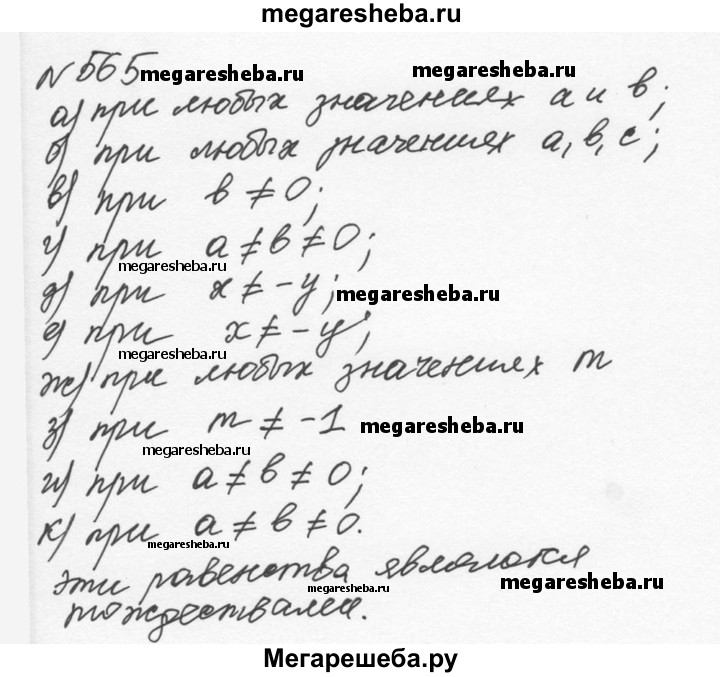 megaresheba.ru
N 565 megaresheba.ru megaresheba.ru
а) при любых значениях а и в;
б) при любых значениях а, в, с;
в) при в ≠ 0;
г) при а ≠ в ≠ 0;
megaresheba.ru
д) при x ≠ -y; megaresheba.ru
е) при x ≠ -y;
megaresheba.ru
ж) при любых значениях m
з) при m ≠ -1 megaresheba.ru
megaresheba.ru
и) при а ≠ в ≠ 0;
к) при а ≠ в ≠ 0.
megaresheba.ru
эти равенства являются megaresheba.ru
megaresheba.ru
тождествами.
Мегарешеба.ру